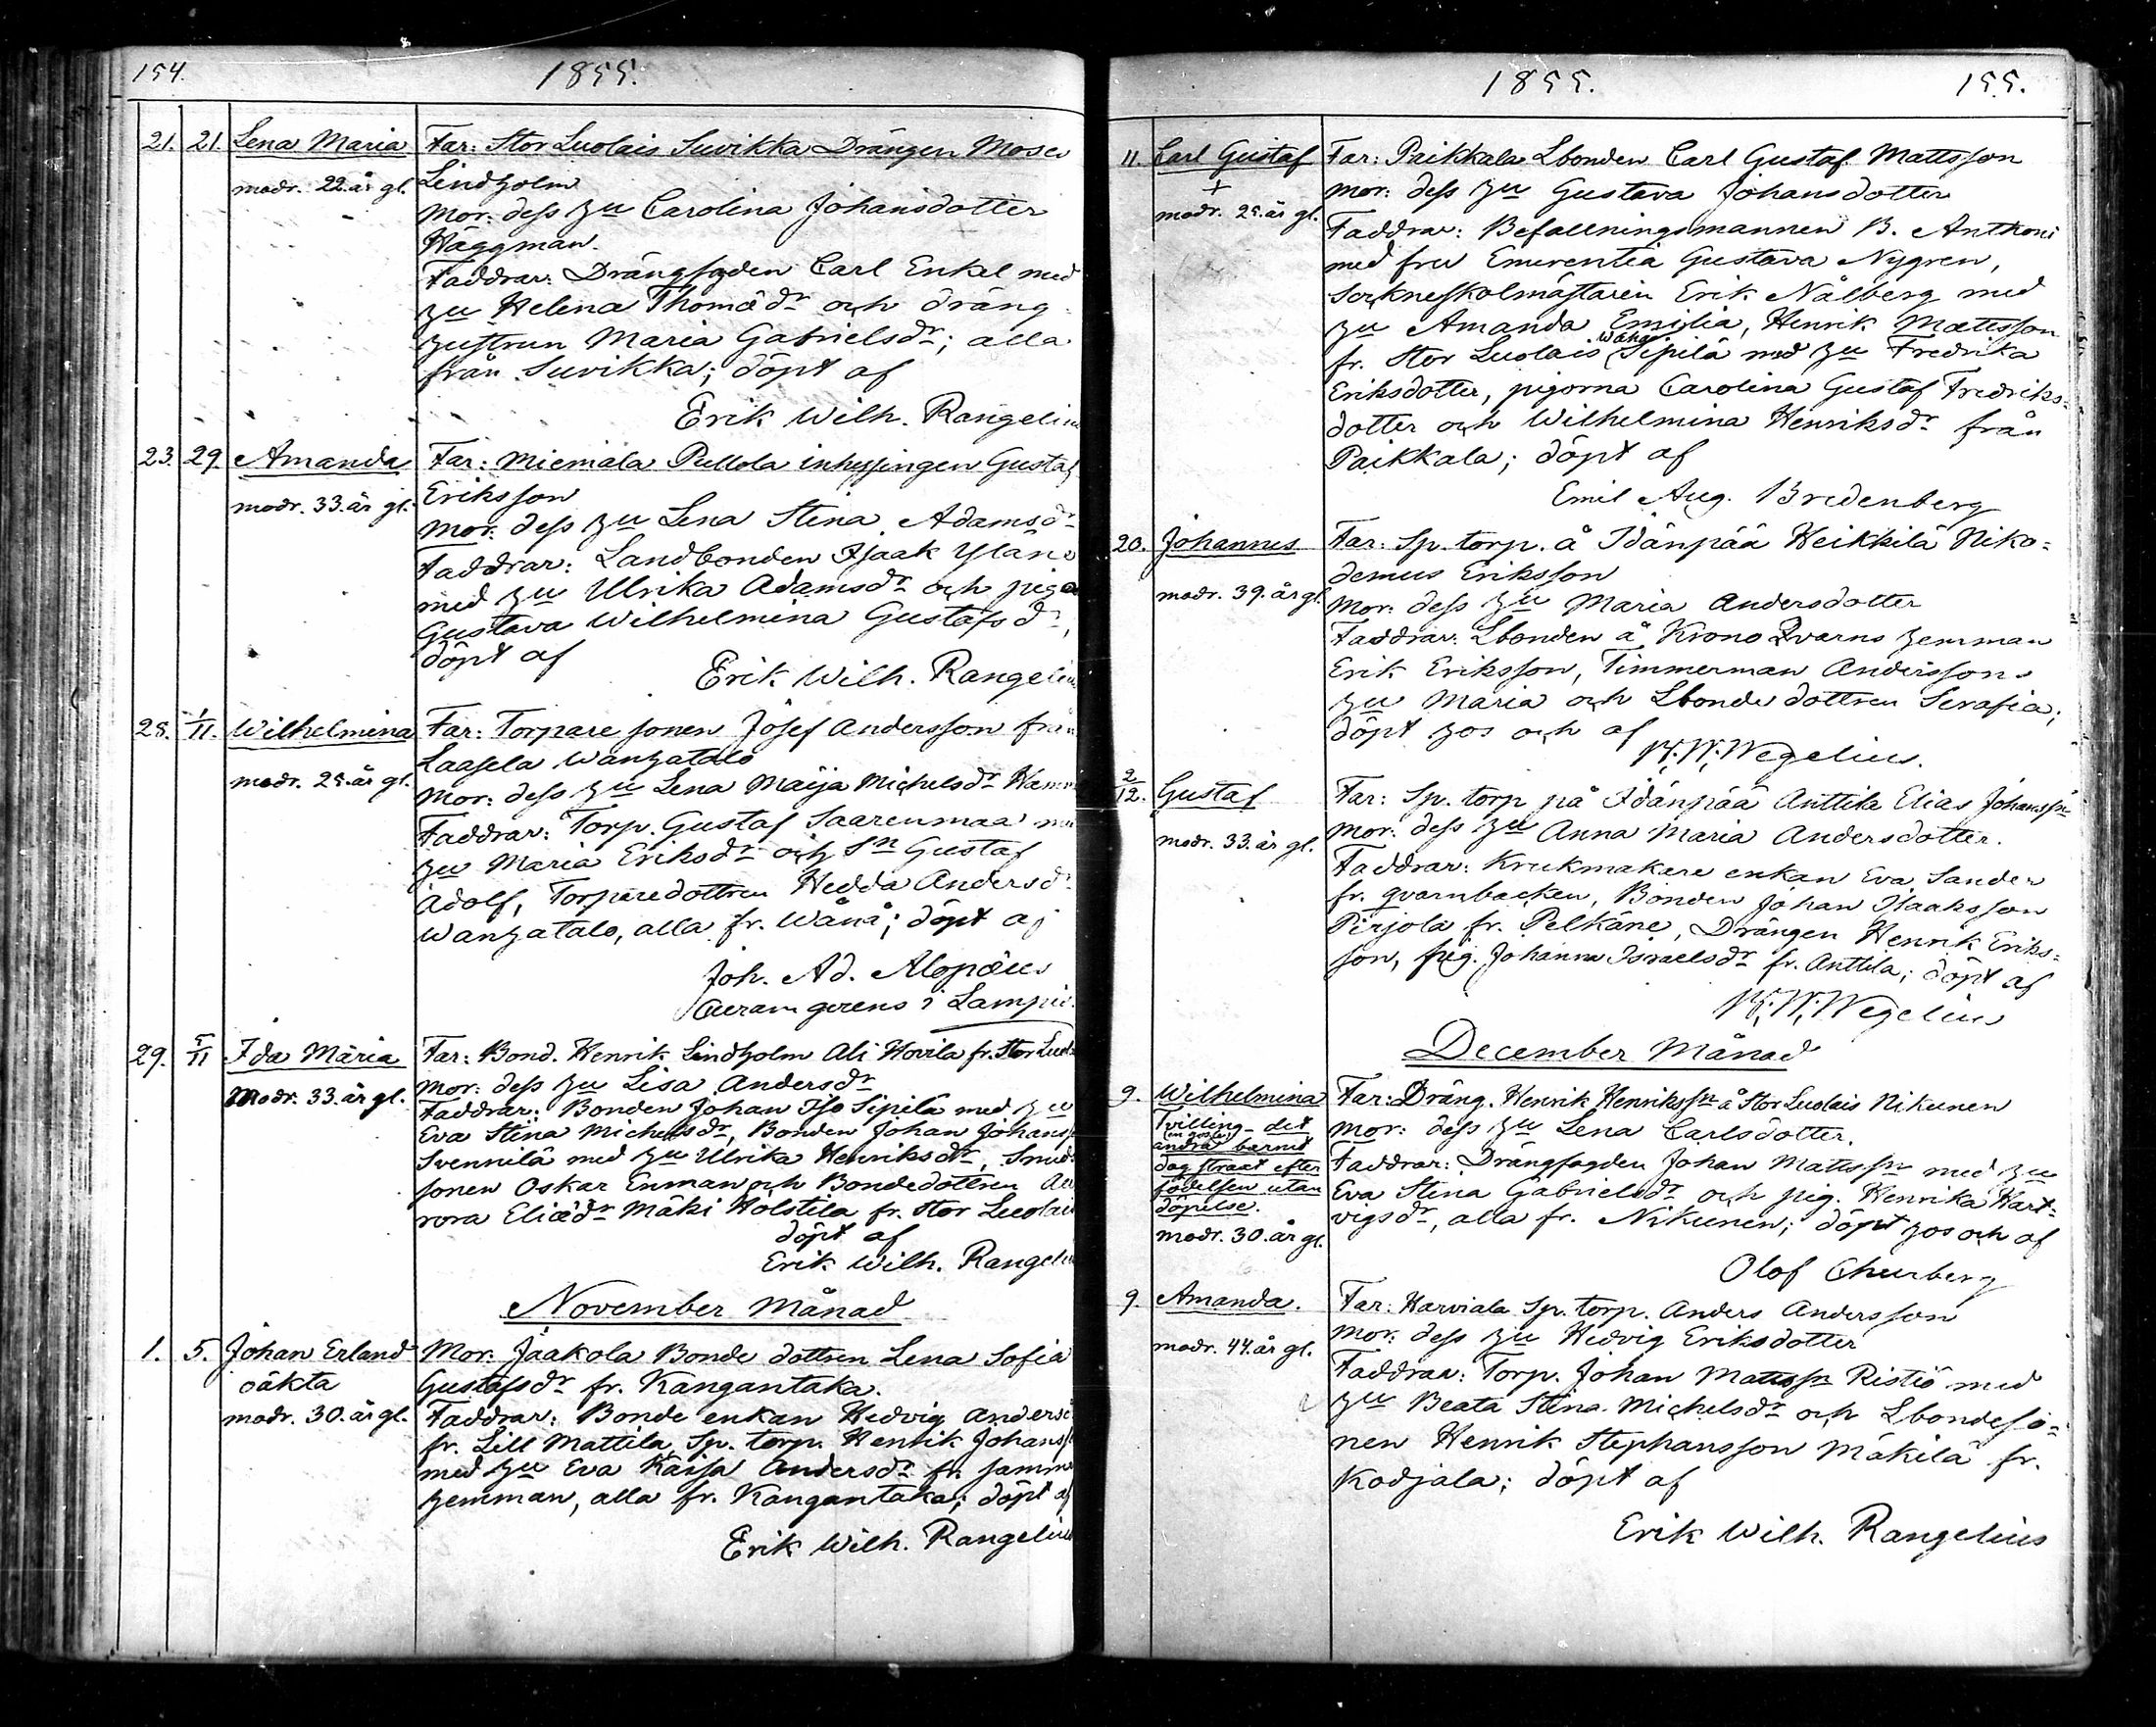 154.
1855.
21. 21. Lena Maria
modr. 22. år gl.
Far: Stor Luolais Suvikka Drängen Moses
Lindholm
Mor: dess hu Carolina Johansdotter
Häggman.
Faddrar: Drängfogden Carl Enkel med
hu Helena Thomædr och dräng
hustrun Maria Gabrielsdr; alla
från Suvikka; döpt af
Erik Wilh. Rangeliu
23. 29. Amanda
modr. 33. år gl.
Far: Miemala Pullola inhysingen Gustaf
Eriksson
Mor: dess hu Lena Stina Adamsdr
Faddrar: Landbonden Isaak Yläne
med hu Ulrika Adamsdr och piga
Gustava Wilhelmina Gustafsdr,
döpt af
Erik Wilh. Rangeliu
28. 1/11. Wilhelmina
modr. 25. år gl.
Far: Torpare sonen Josef Andersson från
Laasela Wanhatalo
Mor: dess hu Lena Maija Michelsdr
Faddrar: Torp. Gustaf Saarenmaa
hu Maria Eriksdr och Sn Gustaf
Adolf, Torparedottren Hedda Andersdr
Wanhatalo, alla fr. Wånå; döpt af
Joh. Ad. Alopæus
gerens i
29. 5/11 Ida Maria
Modr. 33. år gl.
Far: Bond. Henrik Lindholm Ali Hovila fr. Stor Luol
Mor: dess hu Lisa Andersdr
Faddrar: Bonden Johan Iso Sipilä med hu
Eva Stina Michelsdr, Bonden Johan Johanss
Svennilä med hu Ulrika Henriksdr, Smed
sonen Oskar Enman och Bondedottren Au
rora Eliædr Mäki Holstila fr. Stor Luolais
döpt af
Erik Wilh. Rangeliu
November Månad
1. 5. Johan Erland
oäkta
modr. 30. år gl.
Mor: Jaakola Bonde dottren Lena Sofia
Gustafsdr fr. Kangantaka.
Faddrar: Bonde enkan Hedvig Andersd
fr. Lill Mattila, Sp. torp. Henrik Johanss
med hu Eva Kaisa Andersdr fr. samma
hemman, alla fr. Kangantaka; döpt af
Erik Wilh. Rangelius
1855.
155.
11. Carl Gustaf
+
modr. 25. år gl.
Far: Paikkala Lbonden Carl Gustaf Mattsson
Mor: dess hu Gustava Johansdotter
Faddrar: Befallningsmannen B. Anthoni
med fru Emerentia Gustava Nygren,
Sockneskolmästaren Erik Nålberg med
hu Amanda Emilia, Henrik Mattsson
fr. Stor Luolais Wähä Sipilä med hu Fredrika
Eriksdotter, pigorna Carolina Gustaf Fredriks=
dotter och Wilhelmina Henriksdr från
Paikkala; döpt af
Emil Aug. Bredenberg
20. Johannes
modr. 39. år gl.
Far: Sp. torp. å Idänpää Heikkilä Niko=
demus Eriksson
Mor: dess hu Maria Andersdotter
Faddrar: Lbonden å Krono Qvarns hemman
Erik Eriksson, Timmerman Anderssons
hu Maria och Lbonde dottren Serafia;
döpt hos och af
K. W. Wegelius.
2/12. Gustaf
modr. 33. år gl.
Far: Sp. torp på Idänpää Anttila Elias Johanssn
Mor: dess hu Anna Maria Andersdotter.
Faddrar: Krukmakare enkan Eva Sander
fr. qvarnbacken, Bonden Johan Isaaksson
Pirjola fr. Pelkäne, Drängen Henrik Eriks=
son, pig. Johanna Israelsdr fr. Anttila; döpt af
K. W. Wegelius
December Månad
9. Wilhelmina
Tvilling - det
(en gosse)
andra barnet
dog straxt efter
födelsen utan
döpelse.
modr. 30. år gl.
Far: Dräng. Henrik Henrikssn å Stor Luolais Nikunen
Mor: dess hu Lena Carlsdotter.
Faddrar: Drängfogden Johan Mattssn med hu
Eva Stina Gabrielsdr och pig. Henrika Hart=
vigsdr, alla fr. Nikunen; döpt hos och af
Olof Churberg
9. Amanda.
modr. 44. år gl.
Far: Harviala Sp. torp. Anders Andersson
Mor: dess hu Hedvig Eriksdotter
Faddrar: Torp. Johan Mattssn Ristiö med
hu Beata Stina Michelsdr och Lbondeso=
nen Henrik Stephansson Mäkilä fr.
Kodjala; döpt af
Erik Wilh. Rangelius